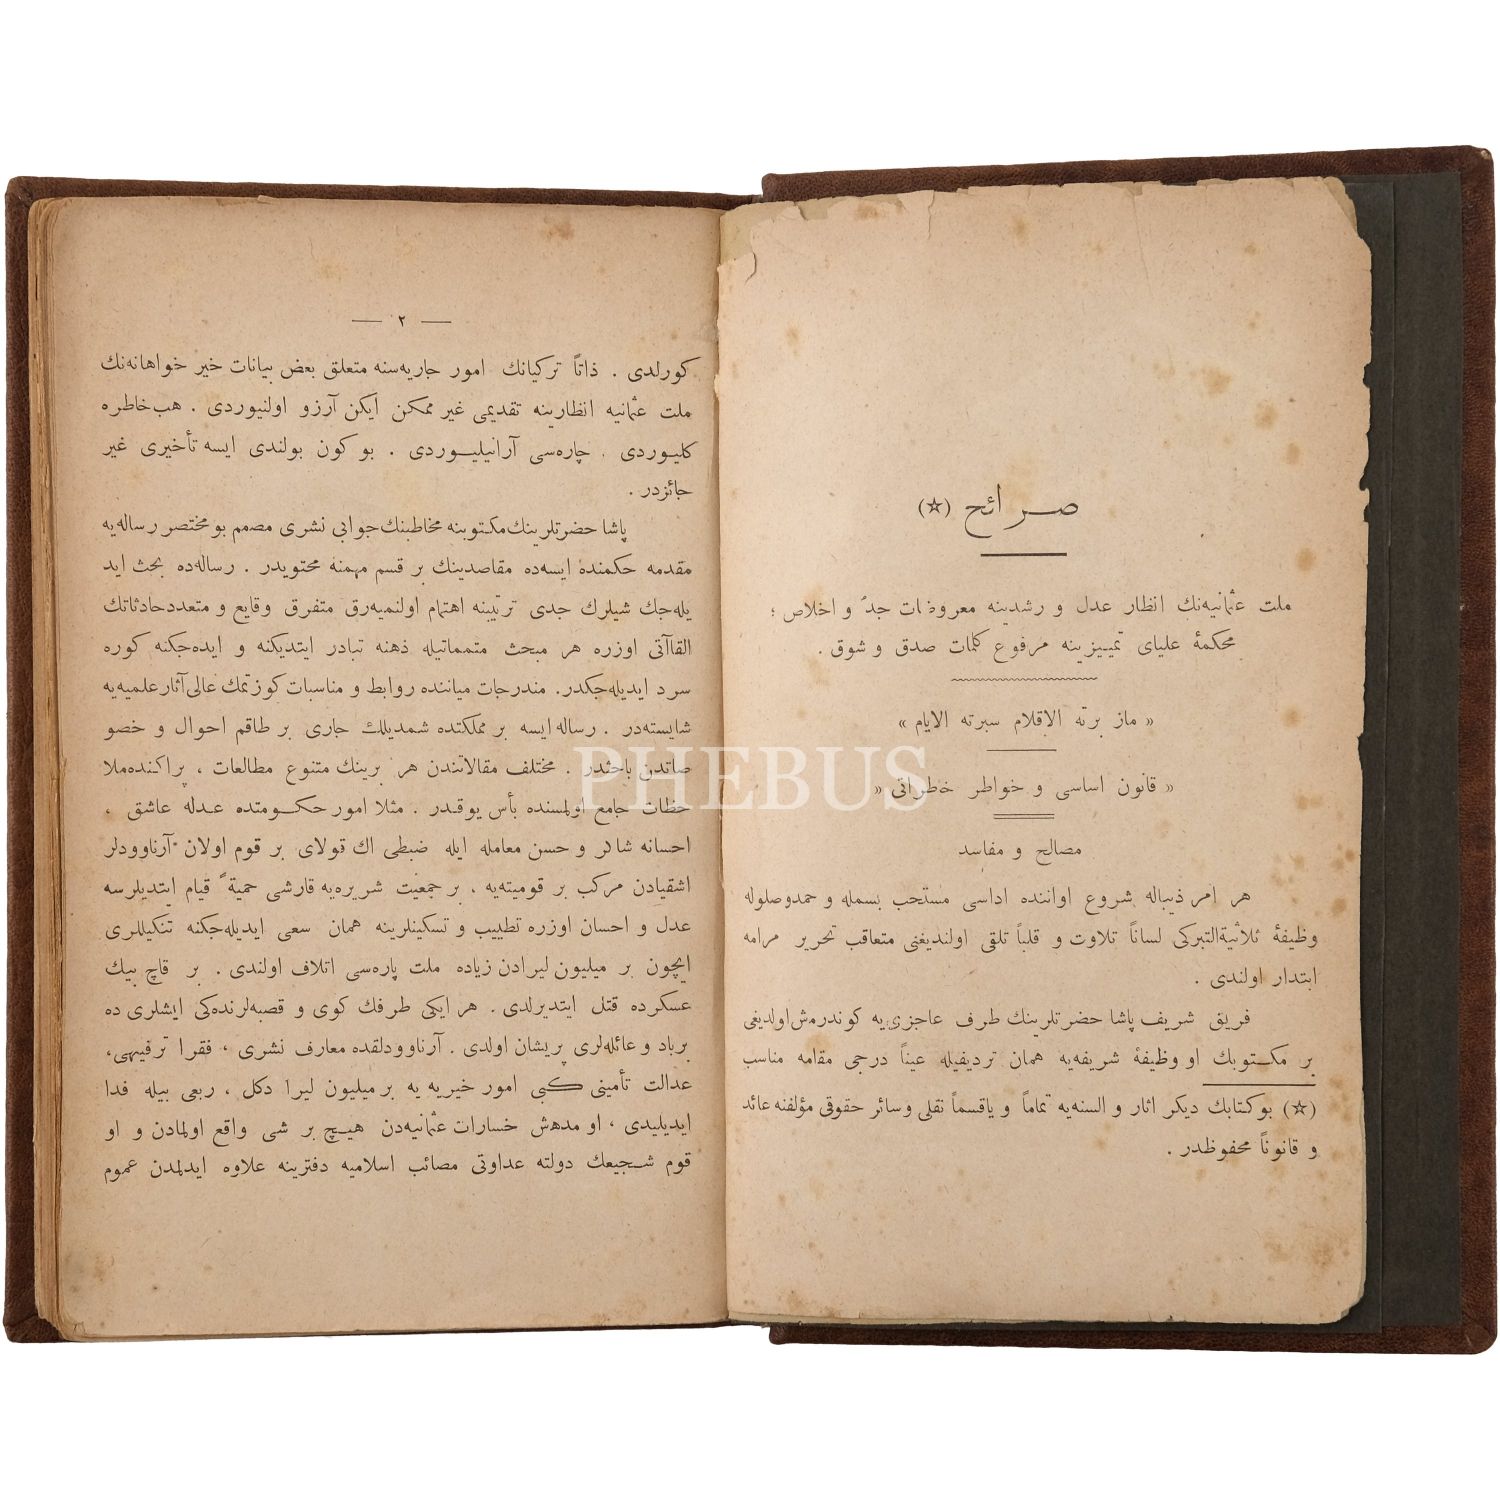 صرائح (☆)
ملت عثمانیه‌نك انظار عدل و رشدینه معروضات جدّ و اخلاص ؛
محكمهٔ علیای تمییزینه مرفوع كلمات صدق و شوق .
« ماز برته الاقلام سبرته الایام »
« قانون اساسی و خواطر خطراتی »
مصالح و مفاسد
هر امر ذیباله شروع اواننده اداسی مستحب بسمله و حمدوصلوله
وظیفهٔ ثلاثیةالتبركی لساناً تلاوت و قلباً تلقی اولندیغنی متعاقب تحریر مرامه
ابتدار اولندی .
فریق شریف پاشا حضرتلرینك طرف عاجزی‌یه كوندرمش‌اولدیغی
بر مكتوبك او وظیفهٔ شریفه‌یه همان تردیفیله عیناً درجی مقامه مناسب
(☆) بوكتابك دیكر اثار و السنه‌یه تماماً و یاقسماً نقلی وسائر حقوقی مؤلفنه عائد
و قانوناً محفوظدر .
— ٢ —
كورلدی . ذاتاً تركیانك امور جاریه‌سنه متعلق بعض بیانات خیر خواهانه‌نك
ملت عثمانیه انظارینه تقدیمی غیر ممكن ایكن آرزو اولنیوردی . هب‌خاطره
كلیوردی . چاره‌سی آرانیلیوردی . بو كون بولندی ایسه تأخیری غیر
جائزدر .
پاشا حضرتلرینك‌مكتوبنه مخاطبنك‌جوابی نشری مصمم بومختصر رساله‌یه
مقدمه حكمنده ایسه‌ده مقاصدینك بر قسم مهمنه محتویدر . رساله‌ده بحث اید
یله‌جك شیلرك جدی ترتیبنه اهتمام اولنمیه‌رق متفرق وقایع و متعددحادثاتك
القاآتی اوزره هر مبحث متمماتیله ذهنه تبادر ایتدیكنه و ایده‌جكنه كوره
سرد ایدیله‌جكدر. مندرجات میاننده روابط و مناسبات كوزتمك عالی‌آثارعلمیه‌یه
شایسته‌در . رساله ایسه بر مملكتده شمدیلك جاری بر طاقم احوال و خصو
صاتدن باحثدر . مختلف مقالاتندن هر برینك متنوع مطالعات ، پراكنده‌ملا
حظات جامع اولمسنده بأس یوقدر . مثلا امور حكومتده عدله عاشق ،
احسانه شاكر و حسن معامله ایله ضبطی اك قولای بر قوم اولان آرناوودلر
اشقیادن مركب بر قومیته‌یه ، بر جمعیت شریره‌یه قارشی حمیةً قیام ایتدیلرسه
عدل و احسان اوزره تطییب و تسكینلرینه همان سعی ایدیله‌جكنه تنكیللری
ایچون بر میلیون لیرادن زیاده ملت پاره‌سی اتلاف اولندی . بر قاچ بیك
عسكرده قتل ایتدیرلدی . هر ایكی طرفك كوی و قصبه‌لرنده‌كی ایشلری ده
برباد و عائله‌لری پریشان اولدی . آرناوودلقده معارف نشری ، فقرا ترفیهی،
عدالت تأمینی كبی امور خیریه یه بر میلیون لیرا دكل ، ربعی بیله فدا
ایدیلیدی ، او مدهش خسارات عثمانیه‌دن هیچ بر شی واقع اولمادن و او
قوم شجیعك دولته عداوتی مصائب اسلامیه دفترینه علاوه ایدلمدن عموم
PHEBUS